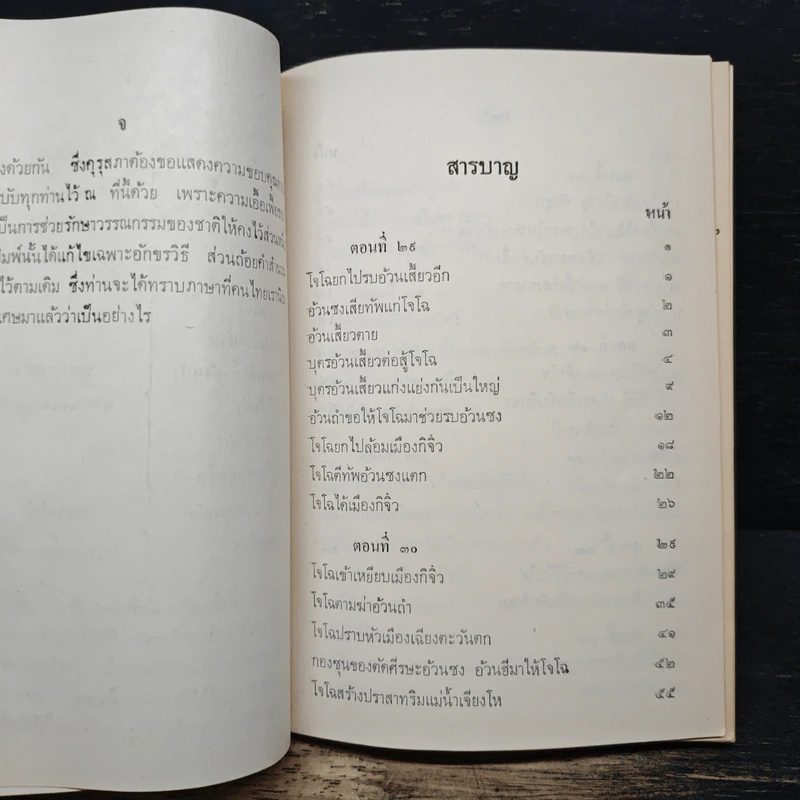 จ
งด้วยกัน ซึ่งคุรุสภาต้องขอแสดงความขอบคุณ
บับทุกท่านไว้ ณ ที่นี้ด้วย เพราะความเอื้อเฟื้อ
เป็นการช่วยรักษาวรรณกรรมของชาติให้คงไว้ส่วนหนึ่ง
พิมพ์นั้นได้แก้ไขเฉพาะอักขรวิธี ส่วนถ้อยคำสำนวน
ไว้ตามเดิม ซึ่งท่านจะได้ทราบภาษาที่คนไทยเรานิยม
เศษมาแล้วว่าเป็นอย่างไร
สารบาญ
หน้า
ตอนที่ ๒๙ ๑
โจโฉยกไปรบอ้วนเสี้ยวอีก ๑
อ้วนซงเสียทัพแก่โจโฉ ๒
อ้วนเสี้ยวตาย ๓
บุตรอ้วนเสี้ยวต่อสู้โจโฉ ๔
บุตรอ้วนเสี้ยวแก่งแย่งกันเป็นใหญ่ ๙
อ้วนถำขอให้โจโฉมาช่วยรบอ้วนซง ๑๒
โจโฉยกไปล้อมเมืองกิจิ๋ว ๑๘
โจโฉตีทัพอ้วนซงแตก ๒๒
โจโฉได้เมืองกิจิ๋ว ๒๖
ตอนที่ ๓๐ ๒๙
โจโฉเข้าเหยียบเมืองกิจิ๋ว ๒๙
โจโฉตามฆ่าอ้วนถำ ๓๕
โจโฉปราบหัวเมืองเฉียงตะวันตก ๔๑
กองซุนของตัดศีรษะอ้วนซง อ้วนฮีมาให้โจโฉ ๕๒
โจโฉสร้างปราสาทริมแม่น้ำเจียงโห ๕๕